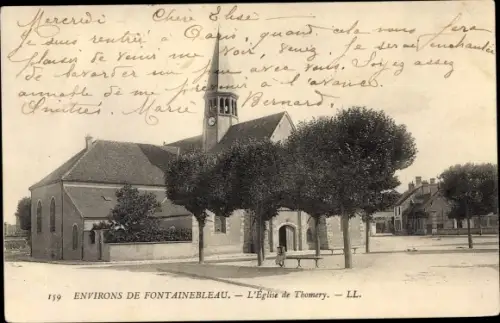 Mercredi Chère Elise
Je suis rentrée à Thomery, quand cela vous fera
plaisir de venir me voir, venez je serai enchantée
de bavarder un peu avec vous. Soyez assez
aimable de me prévenir à l'avance
Amitiés Marie Bernard
159 ENVIRONS DE FONTAINEBLEAU. - L'Église de Thomery. - LL.